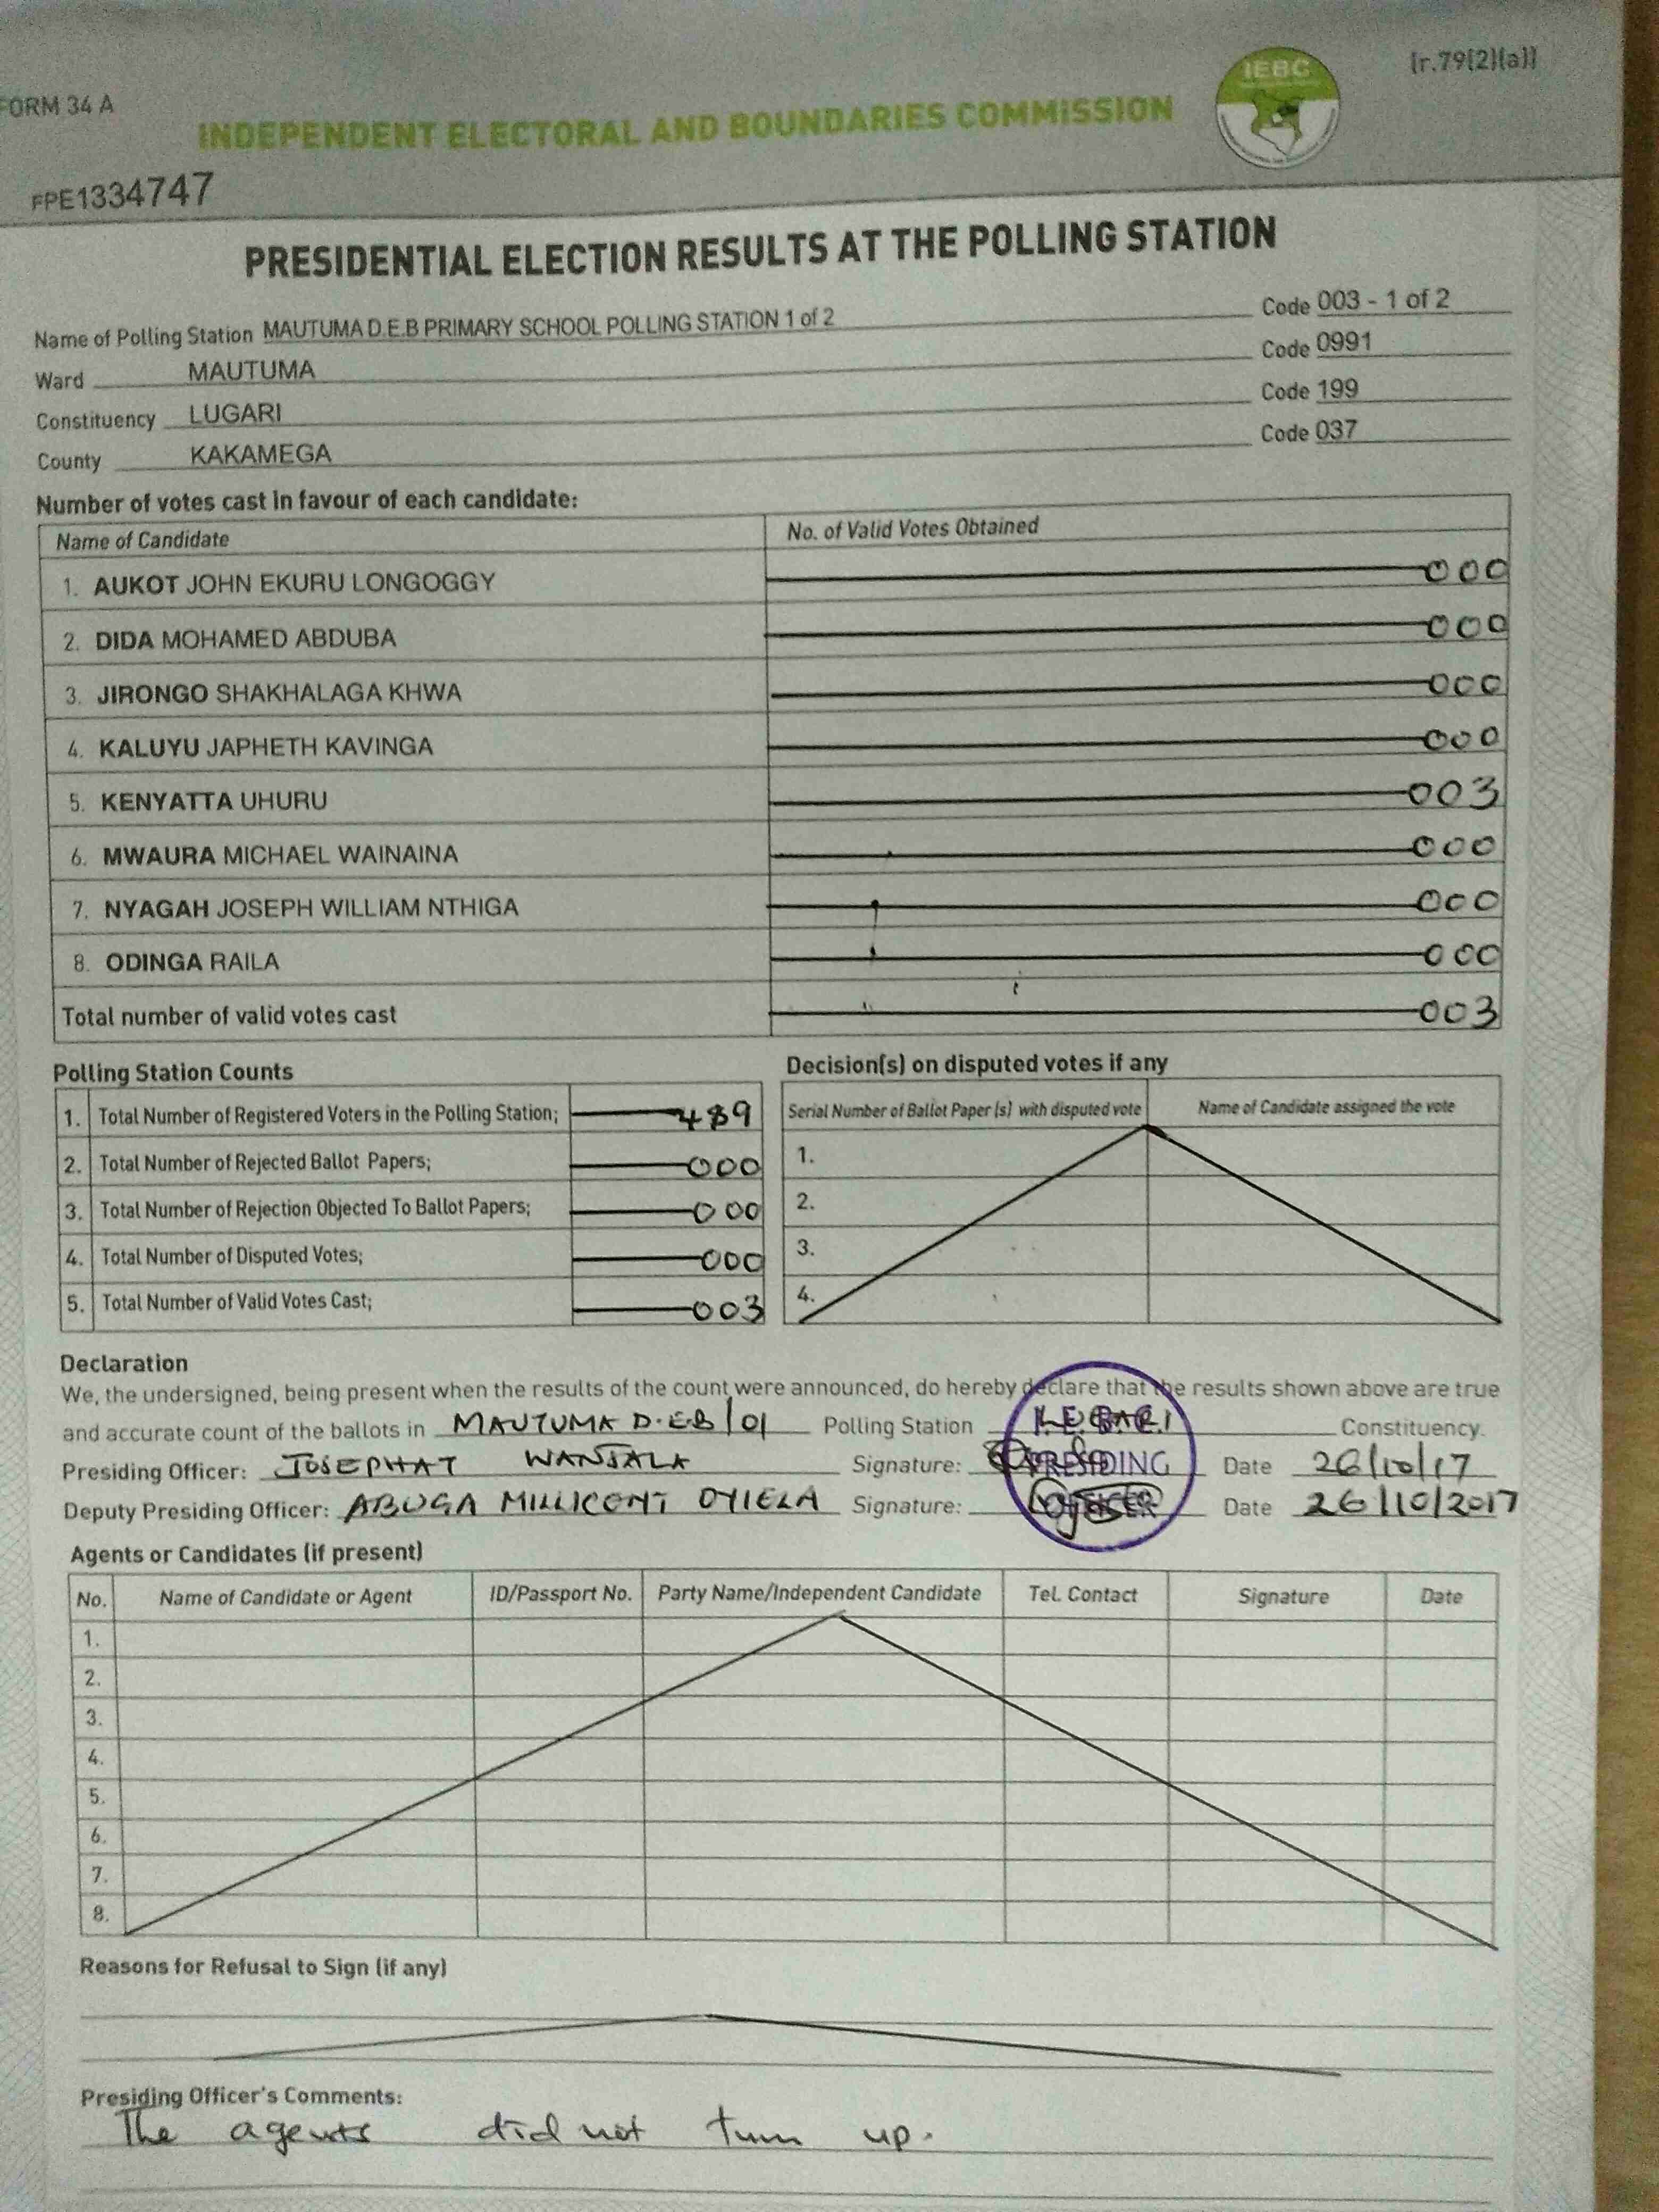 FORM 34 A
[r.79(2)(a)]
IEBC
INDEPENDENT ELECTORAL AND BOUNDARIES COMMISSION
FPE1334747
PRESIDENTIAL ELECTION RESULTS AT THE POLLING STATION
Name of Polling Station MAUTUMA D.E.B PRIMARY SCHOOL POLLING STATION 1 of 2 Code 003 - 1 of 2
Ward MAUTUMA Code 0991
Constituency LUGARI Code 199
County KAKAMEGA Code 037
Number of votes cast in favour of each candidate:
Name of Candidate No. of Valid Votes Obtained
1. AUKOT JOHN EKURU LONGOGGY 000
2. DIDA MOHAMED ABDUBA 000
3. JIRONGO SHAKHALAGA KHWA 000
4. KALUYU JAPHETH KAVINGA 000
5. KENYATTA UHURU 003
6. MWAURA MICHAEL WAINAINA 000
7. NYAGAH JOSEPH WILLIAM NTHIGA 000
8. ODINGA RAILA 000
Total number of valid votes cast 003
Polling Station Counts
1. Total Number of Registered Voters in the Polling Station; 489
2. Total Number of Rejected Ballot Papers; 000
3. Total Number of Rejection Objected To Ballot Papers; 000
4. Total Number of Disputed Votes; 000
5. Total Number of Valid Votes Cast; 003
Decision(s) on disputed votes if any
Serial Number of Ballot Paper (s) with disputed vote Name of Candidate assigned the vote
1.
2.
3.
4.
Declaration
We, the undersigned, being present when the results of the count were announced, do hereby declare that the results shown above are true
and accurate count of the ballots in MAUTUMA D.EB/01 Polling Station LUGARI Constituency.
Presiding Officer: JOSEPHAT WANJALA Signature: Date 26/10/17
Deputy Presiding Officer: ABUGA MILLICENT OYIELA Signature: Date 26/10/2017
I.E.B.C.
PRESIDING
OFFICER
Agents or Candidates (if present)
No. Name of Candidate or Agent ID/Passport No. Party Name/Independent Candidate Tel. Contact Signature Date
1.
2.
3.
4.
5.
6.
7.
8.
Reasons for Refusal to Sign (if any)
Presiding Officer's Comments:
The agents did not turn up.